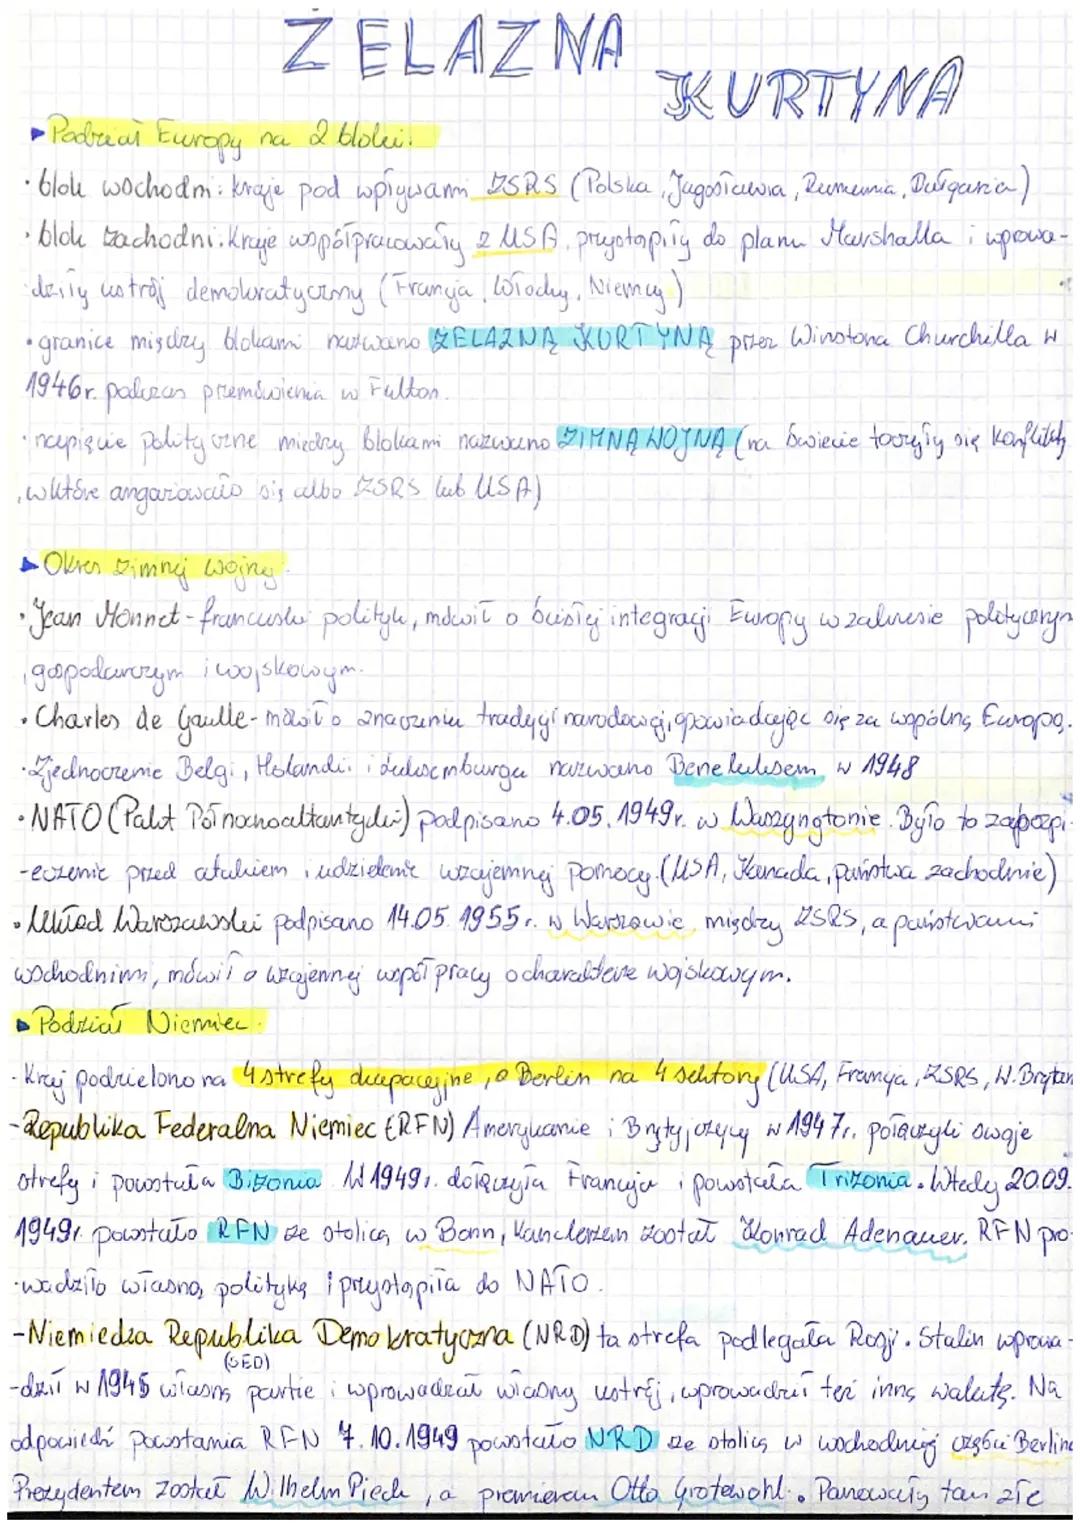 ŻELAZNA
KURTYNA
Podział Europy na 2 bloki:
· blok wschodni: kraje pod wpływami ZSRS (Polska, Jugosławia, Rumunia, Bułgaria)
· blok zachodni: Kraje współpracowały z USA, przystąpiły do planu Marshalla i wprowa-
dziły ustrój demokratyczny (Francja, Włochy, Niemcy)
· granice między blokami nazwano ŻELAZNĄ KURTYNĄ przez Winstona Churchilla w
1946r. podczas przemówienia w Fulton.
· napięcie polityczne między blokami nazwano ZIMNĄ WOJNĄ (na świecie toczyły się konflikty
, w które angażowało się albo ZSRS lub USA)
Okres zimnej wojny.
· Jean Monnet - francuski polityk, mówił o ścisłej integracji Europy w zakresie politycznym
, gospodarczym i wojskowym.
· Charles de Gaulle - mówił o znaczeniu tradycji narodowej, opowiadając się za wspólną Europą.
· Zjednoczenie Belgi, Holandii i Luksemburga nazwano Beneluksem w 1948
· NATO (Pakt Północnoatlantycki) podpisano 4.05.1949r. w Waszyngtonie. Było to zabezpi-
-eczenie przed atakiem i udzielenie wzajemnej pomocy. (USA, Kanada, państwa zachodnie)
· Układ Warszawski podpisano 14.05.1955r. w Warszawie między ZSRS, a państwami
wschodnimi, mówił o wzajemnej współpracy o charakterze wojskowym.
Podział Niemiec.
· Kraj podzielono na 4 strefy okupacyjne, a Berlin na 4 sektory (USA, Francja, ZSRS, W. Brytan
- Republika Federalna Niemiec (RFN) Amerykanie i Brytyjczycy w 1947r. połączyli swoje
strefy i powstała Bizonia. W 1949r. dołączyła Francja i powstała Trizonia. Wtedy 20.09.
1949r. powstało RFN ze stolicą w Bonn, kanclerzem został Konrad Adenauer. RFN pro-
-wadziło własną politykę i przystąpiła do NATO.
- Niemiecka Republika Demokratyczna (NRD) ta strefa podlegała Rosji. Stalin wprowa-
(SED)
-dził w 1945 własną partie i wprowadzał własny ustrój, wprowadził też inną walutę. Na
odpowiedź powstania RFN 7.10.1949 powstało NRD ze stolicą w wschodniej części Berlina
Prezydentem został Wilhelm Pieck, a premierem Otto Grotewohl. Panowały tam złe